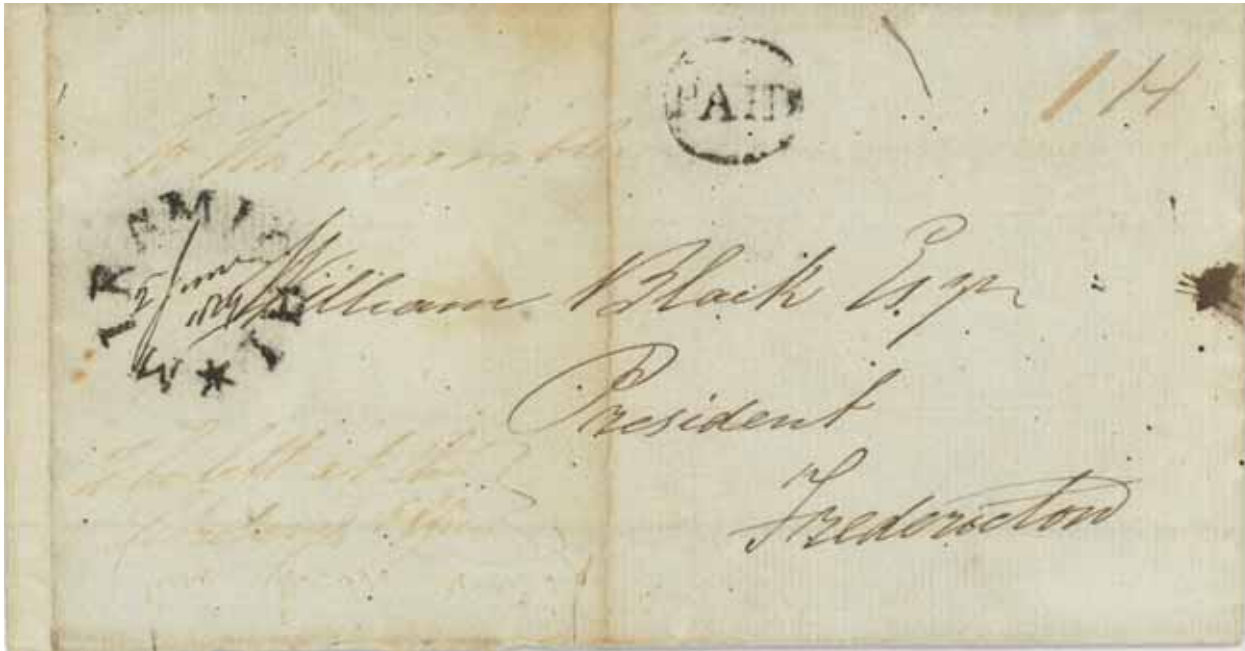 PAID
1/4
To the Honorable
MIRAMICHI
William Black Esqr
President
Fredericton